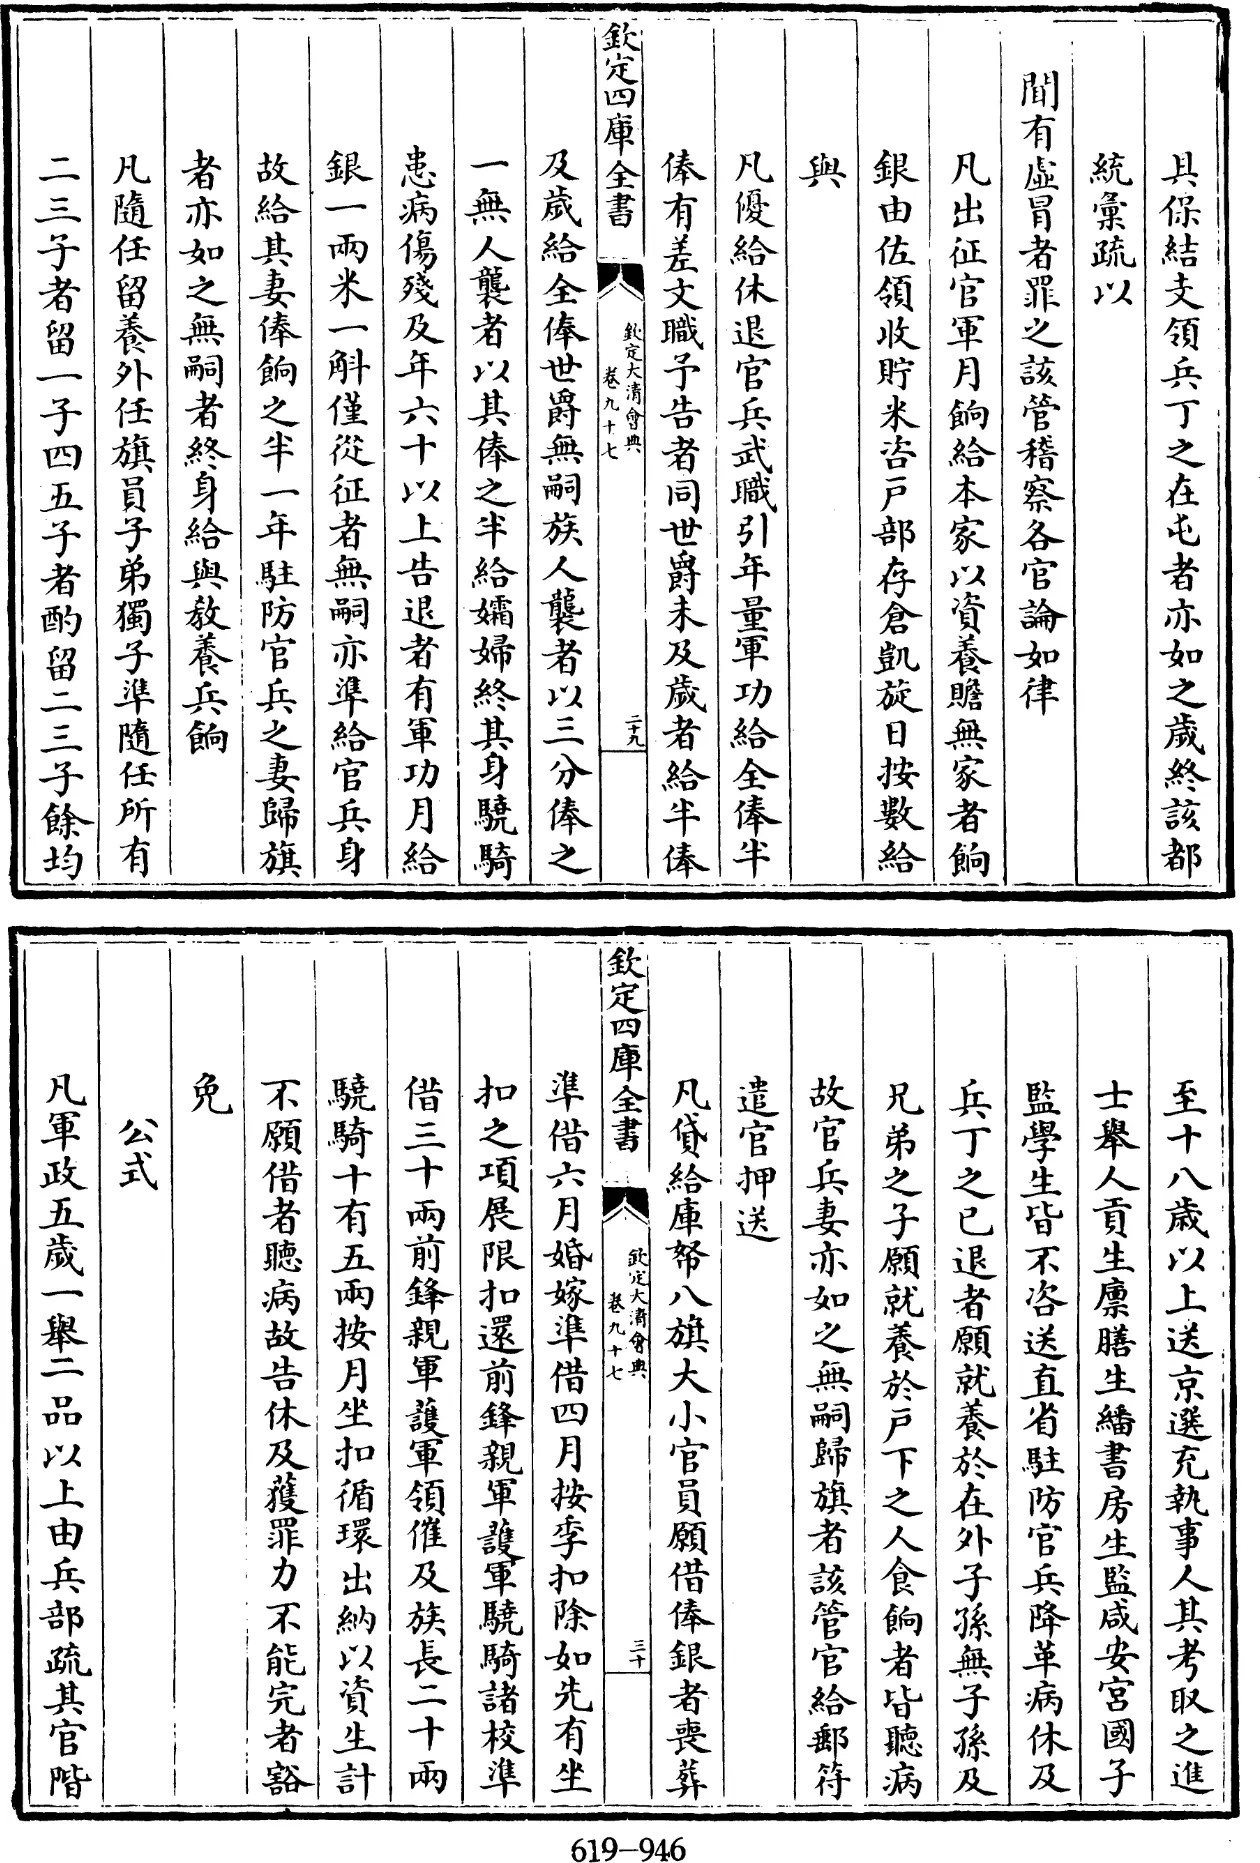 具保結支領兵丁之在屯者亦如之歲終該都
統彙疏以
聞有虛冒者罪之該管稽察各官論如律
凡出征官軍月餉給本家以資養贍無家者餉
銀由佐領收貯米咨戸部存倉凱旋日按數給
與
凡優給休退官兵武職引年量軍功給全俸半
俸有差文職予告者同世爵未及歲者給半俸
欽定四庫全書
欽定大清會典
卷九十七
二十九
及歲給全俸世爵無嗣族人襲者以三分俸之
一無人襲者以其俸之半給孀婦終其身驍騎
患病傷殘及年六十以上告退者有軍功月給
銀一兩米一斛僅從征者無嗣亦準給官兵身
故給其妻俸餉之半一年駐防官兵之妻歸旗
者亦如之無嗣者終身給與教養兵餉
凡隨任留養外任旗員子弟獨子準隨任所有
二三子者留一子四五子者酌留二三子餘均
至十八歲以上送京選充執事人其考取之進
士舉人貢生廪膳生繙書房生監咸安宮國子
監學生皆不咨送直省駐防官兵降革病休及
兵丁之已退者願就養於在外子孫無子孫及
兄弟之子願就養於戸下之人食餉者皆聽病
故官兵妻亦如之無嗣歸旗者該管官給郵符
遣官押送
凡貸給庫帑八旗大小官員願借俸銀者喪葬
欽定四庫全書
欽定大清會典
卷九十七
三十
準借六月婚嫁準借四月按季扣除如先有坐
扣之項展限扣還前鋒親軍護軍驍騎諸校準
借三十兩前鋒親軍護軍領催及族長二十兩
驍騎十有五兩按月坐扣循環出納以資生計
不願借者聽病故告休及獲罪力不能完者豁
免
公式
凡軍政五歲一舉二品以上由兵部疏其官階
619-946